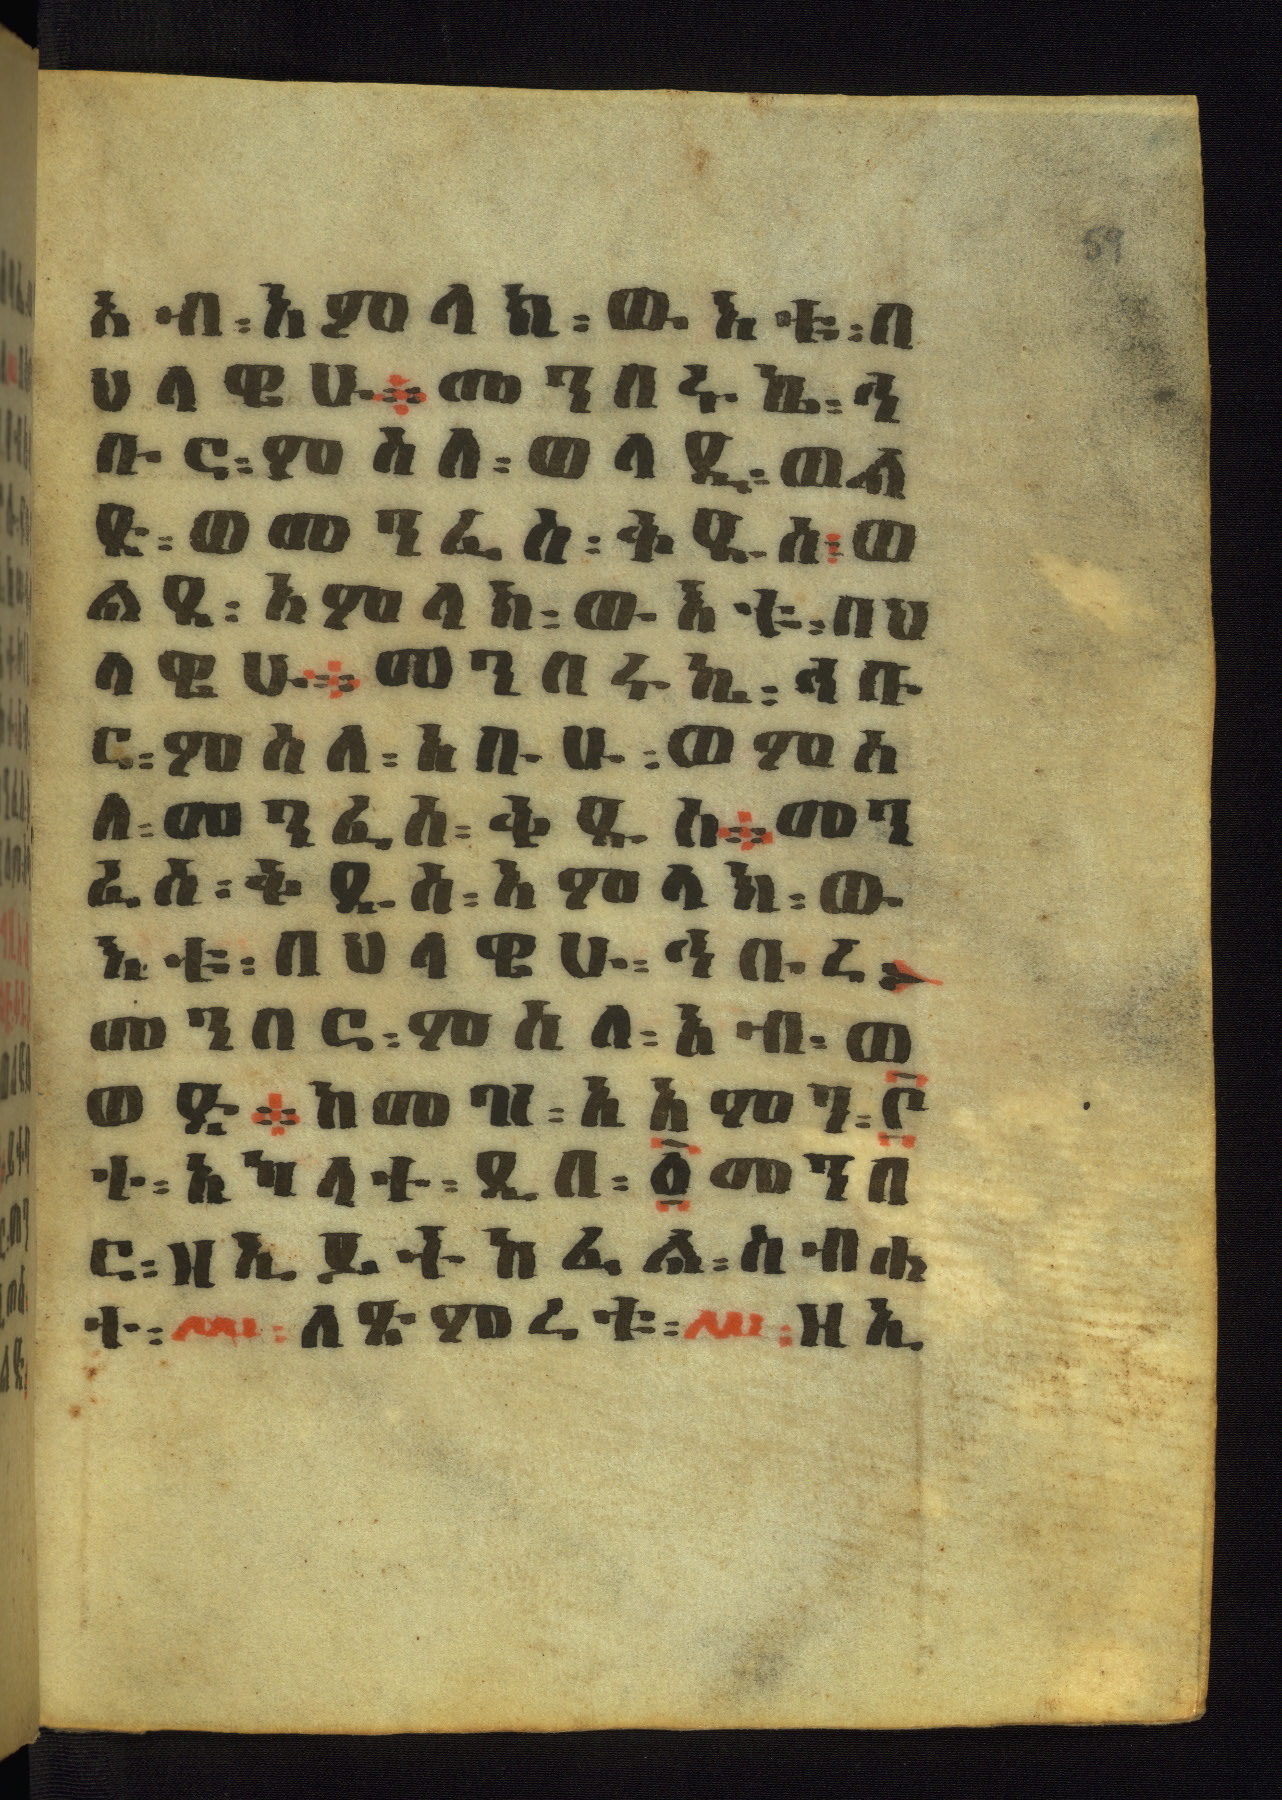 59
አብ፡አምላክ፡ውእቱ፡በ
ህላዌሁ።መንበሩኬ፡ኅ
ቡር፡ምስለ፡ወላዲ፡ወል
ድ፡ወመንፈስ፡ቅዱስ፡ወ
ልዲ፡አምላክ፡ውእቱ፡በህ
ላዌሁ።መንበሩኬ፡ኅቡ
ር፡ምስለ፡አቡሁ፡ወምስ
ለ፡መንፈስ፡ቅዱስ።መን
ፈስ፡ቅዱስ፡አምላክ፡ው
እቱ፡በህላዌሁ፡ኅቡረ
መንበር፡ምስለ፡አብ፡ወ
ወልድ።ከመዝ፡አአምን፡፫
ተ፡አካላተ፡ዲበ፡፩መንበ
ር፡ዘኢይትከፈል፡ስብሐ
ት፡ለፅምረቱ፡ዘኢ